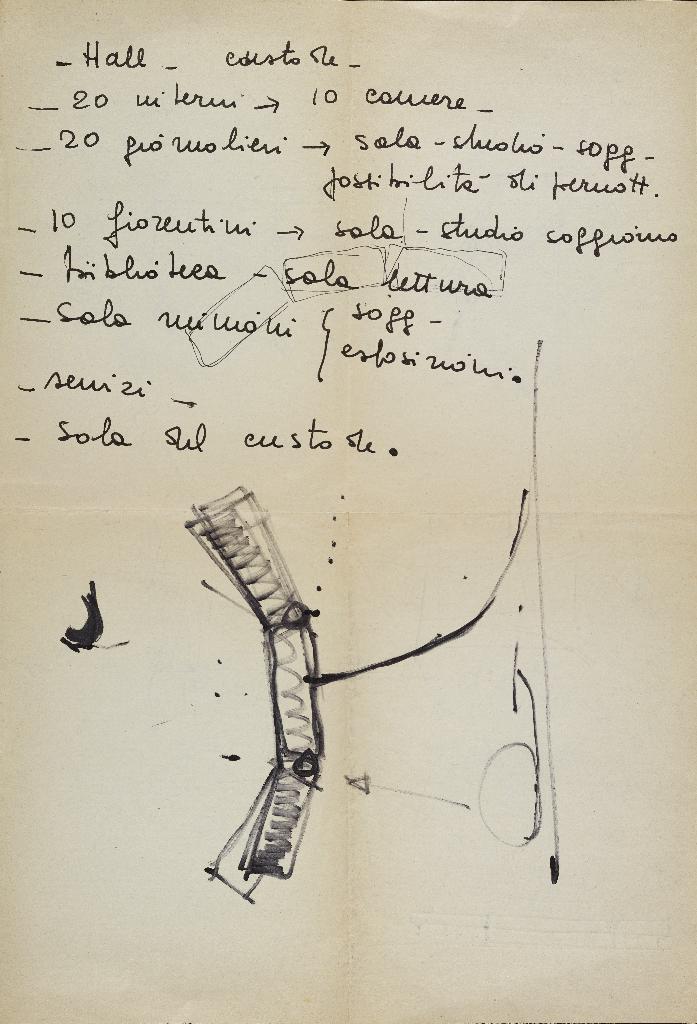 - Hall - custode -
- 20 interni → 10 camere -
- 20 giornalieri → sala - studio - sogg -
possibilità di pernott.
- 10 fiorentini → sala - studio soggiorno
- biblioteca - sala lettura
- Sala riunioni { sogg -
esposizioni.
- servizi -
- Sala del custode.